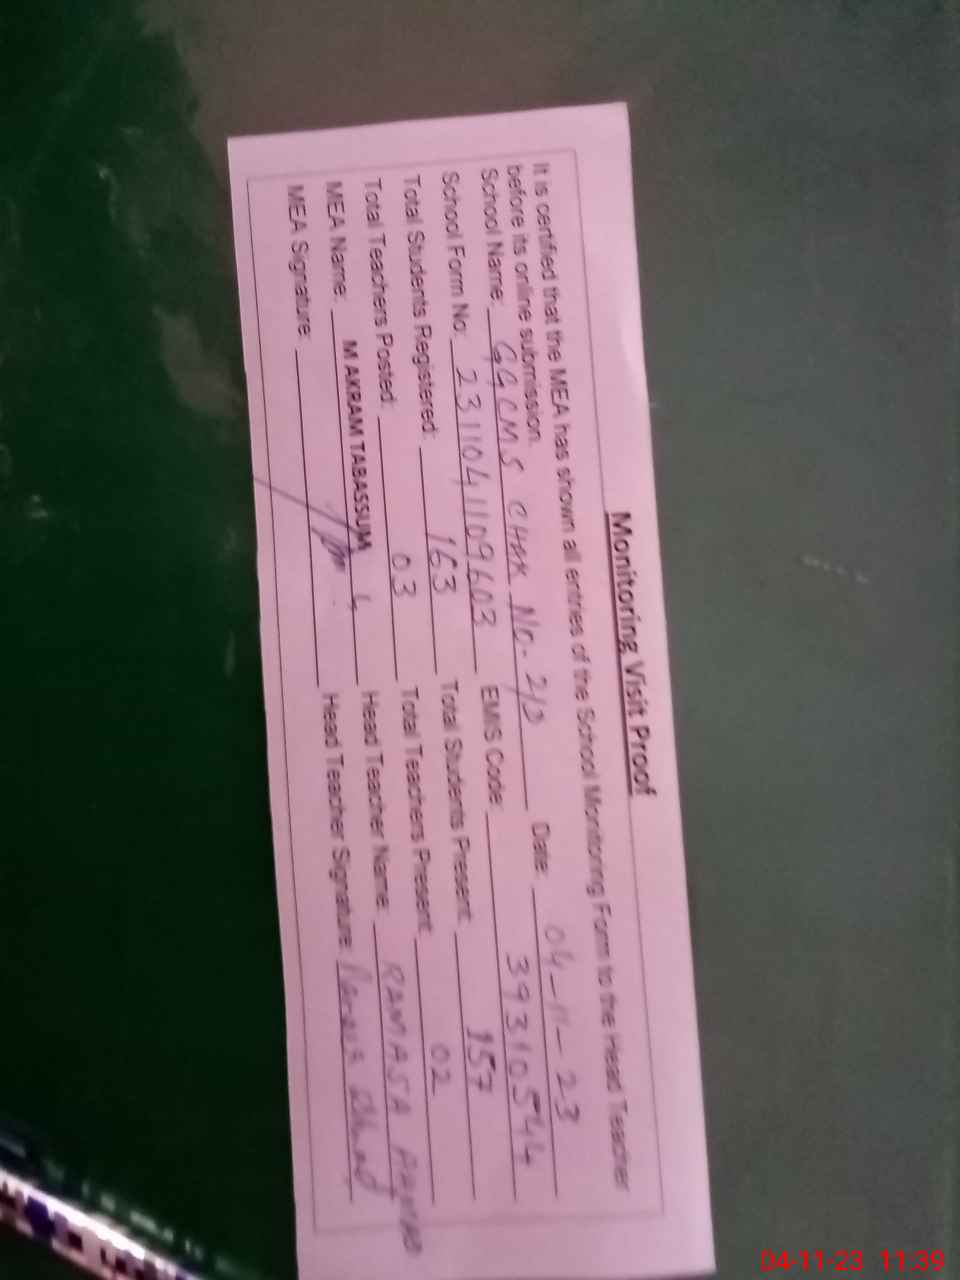 Monitoring Visit Proof
It is certified that the MEA has shown all entries of the School Monitoring Form to the Head Teacher
before its online submission.
School Name: GGCMS CHAK NO. 2/D Date: 04-11-23
School Form No: 2311041109603 EMIS Code: 39310544
Total Students Registered: 163 Total Students Present: 157
Total Teachers Posted: 03 Total Teachers Present: 02
MEA Name: M AKRAM TABASSUM Head Teacher Name: RAMIASA AHMAD
MEA Signature: Head Teacher Signature:
04-11-23 11:39